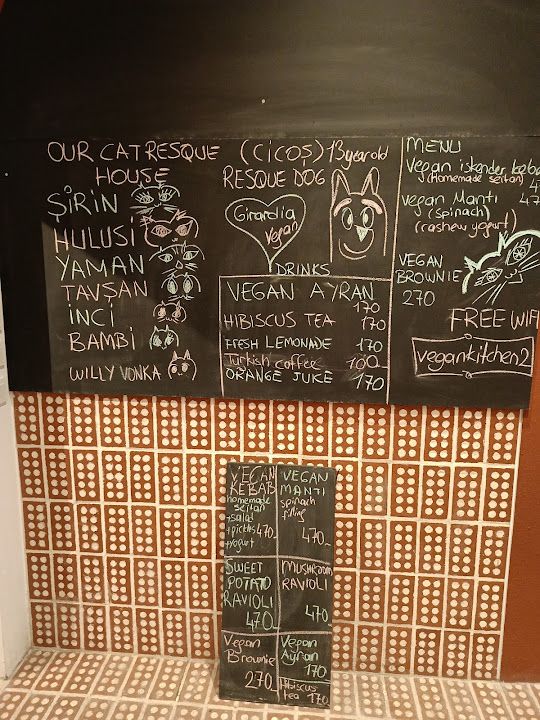 OUR CAT RESQUE
HOUSE
ŞİRİN
HULUSİ
YAMAN
TAVŞAN
İNCİ
BAMBİ
WILLY VONKA
(CİCOŞ) 13 year old
RESQUE DOG
Girardia
Vegan
DRINKS
VEGAN AYRAN
170
HIBISCUS TEA 170
FRESH LEMONADE 170
Turkish coffee 100
ORANGE JUKE 170
MENU
Vegan iskender
(Homemade seitan)
Vegan Mantı
(spinach)
(cashew yogurt)
VEGAN
BROWNIE
270
FREE WIFI
vegankitchen2
VEGAN
KEBAB
homemade
seitan
+salad
+pickles 470
+yogurt
VEGAN
MANTI
spinach
filling
470
SWEET
POTATO
RAVIOLI
470
MUSHROOM
RAVIOLI
470
Vegan
Brownie
270
Vegan
Ayran
170
Hibiscus
tea 170